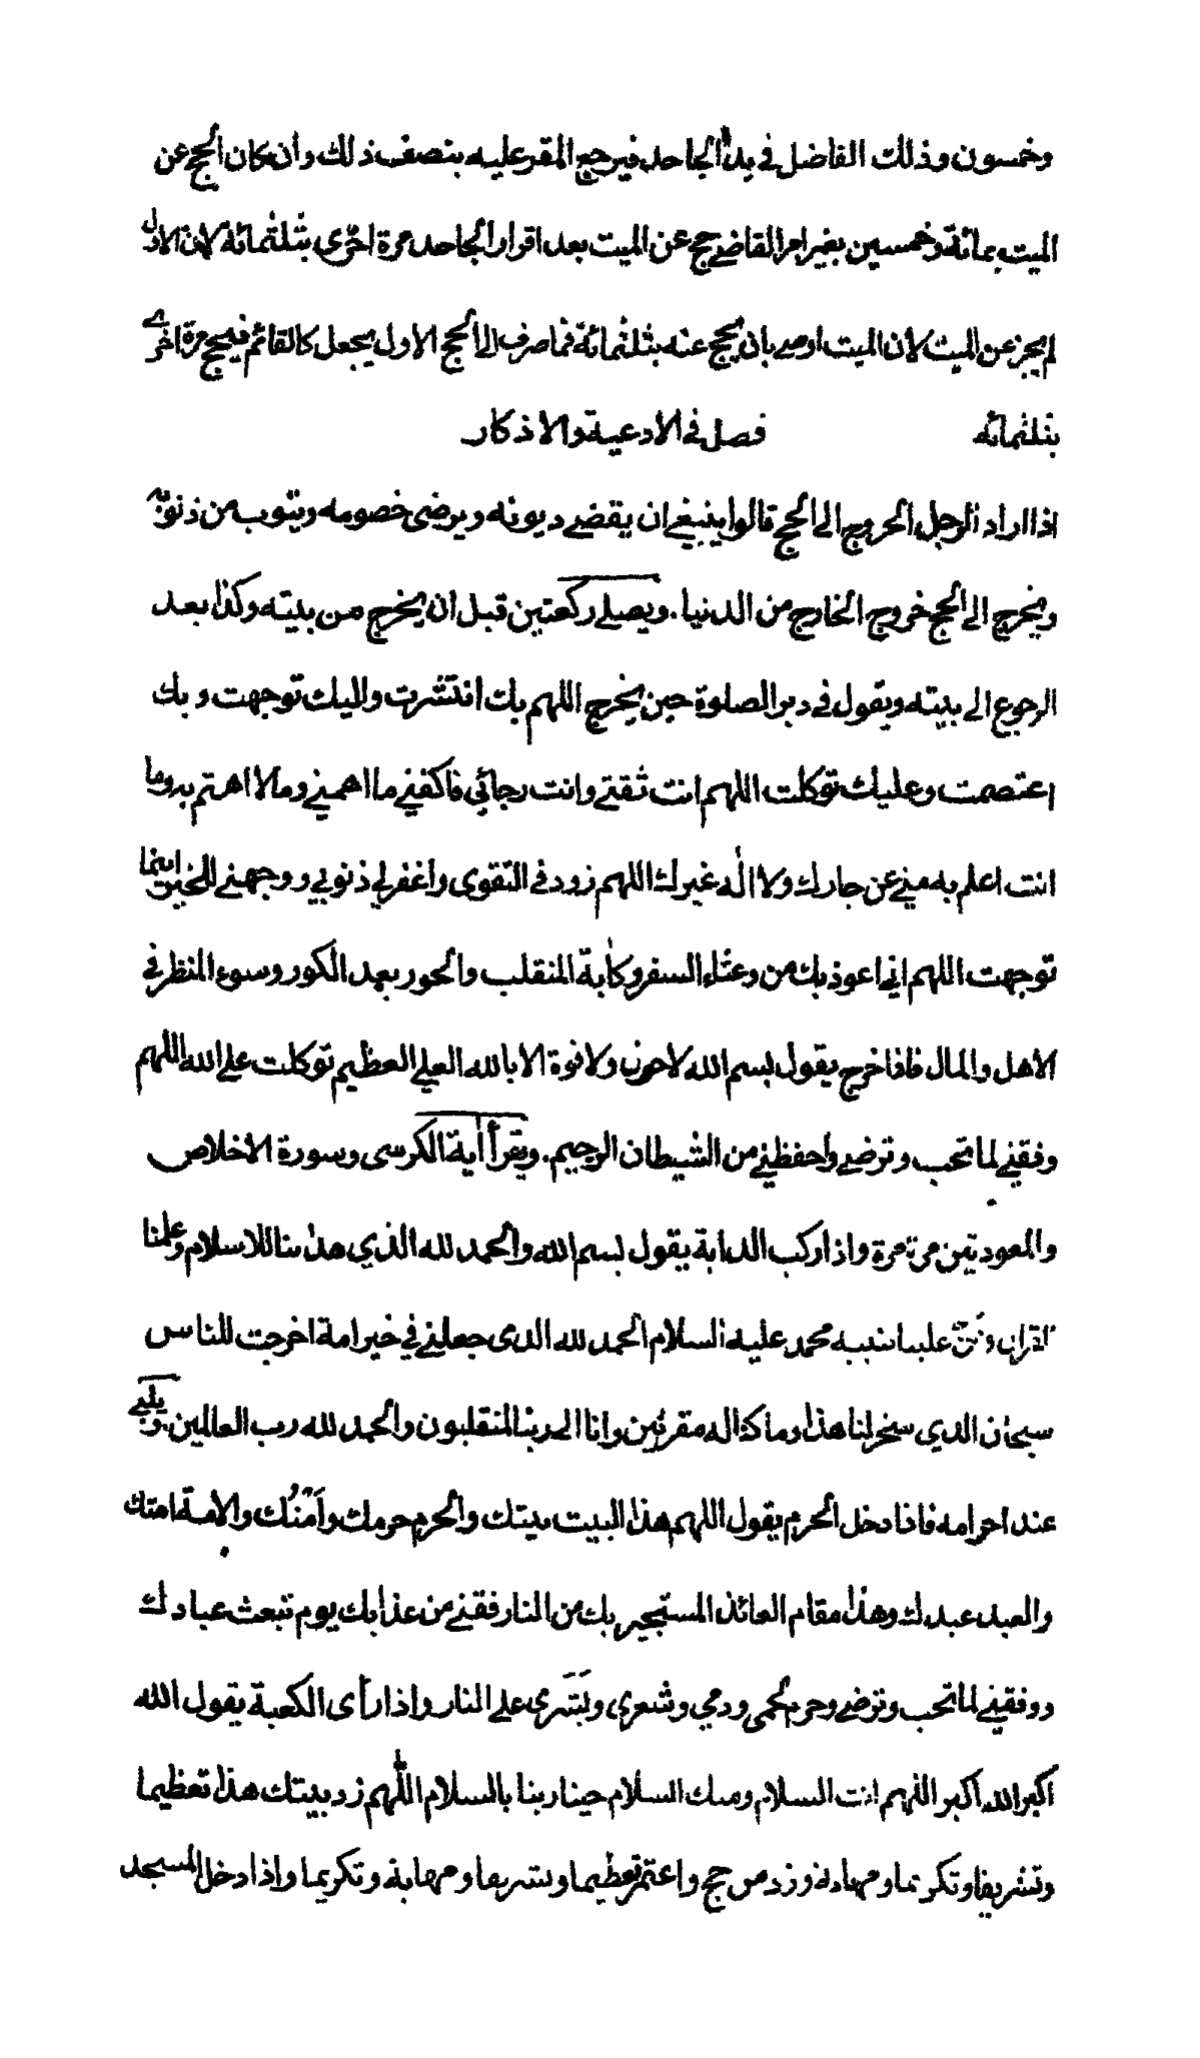 وخمسون وذلك الفاضل في يد الجاحد فيرجع المقر عليه بنصف ذلك وان كان الحج عن
الميت بمائة وخمسين بغير امر القاضي حج عن الميت بعد اقرار الجاحد مرة اخرى بثلثمائة لان الاول
لم يجز عن الميت لان الميت اوصى بان يحج عنه بثلثمائة فما صرف الى الحج الاول يجعل كالقائم فيحج مرة اخرى
بثلثمائه فصل في الادعية والاذكار
اذا اراد الرجل الخروج الى الحج قالوا ينبغي ان يقضي ديونه ويرضى خصومه ويتوب من ذنوبه
ويخرج الى الحج خروج الخارج من الدنيا . ويصلي ركعتين قبل ان يخرج من بيته وكذا بعد
الرجوع الى بيته ويقول في دبر الصلوة حين يخرج اللهم بك انتشرت واليك توجهت وبك
اعتصمت وعليك توكلت اللهم انت ثقتي وانت رجائي فاكفني ما اهمني وما لا اهتم به وما
انت اعلم به مني عز جارك ولا اله غيرك اللهم زودني التقوى واغفر لي ذنوبي ووجهني للخير اينما
توجهت اللهم اني اعوذ بك من وعثاء السفر وكابة المنقلب والحور بعد الكور وسوء المنظر في
الاهل والمال فاذا خرج يقول بسم الله لا حول ولا قوة الا بالله العلي العظيم توكلت على الله اللهم
وفقني لما تحب وترضى واحفظني من الشيطان الرجيم . ويقرأ اية الكرسى وسورة الاخلاص
والمعوذتين مرة مرة واذا ركب الدابة يقول بسم الله والحمد لله الذي هدانا للاسلام وعلمنا
القران ومن علينا بنبيه محمد عليه السلام الحمد لله الذى جعلني في خير امة اخرجت للناس
سبحان الذي سخر لنا هذا وما كنا له مقرنين وانا الى ربنا لمنقلبون والحمد لله رب العالمين . ويلبي
عند احرامه فاذا دخل الحرم يقول اللهم هذا البيت بيتك والحرم حرمك وأمنُك والامة امتك
والعبد عبدك وهذا مقام العائذ المستجير بك من النار فقني من عذابك يوم تبعث عبادك
ووفقني لما تحب وترضى وحرم لحمى ودمي وشعري وبَشَرى على النار واذا رأى الكعبة يقول الله
اكبر الله اكبر اللهم انت السلام ومنك السلام حينا ربنا بالسلام اللّهم زد بيتك هذا تعظيما
وتشريفا وتكريما ومهابة وزد من حج واعتمر تعظيما وتشريفا ومهابة وتكريما واذا دخل المسجد